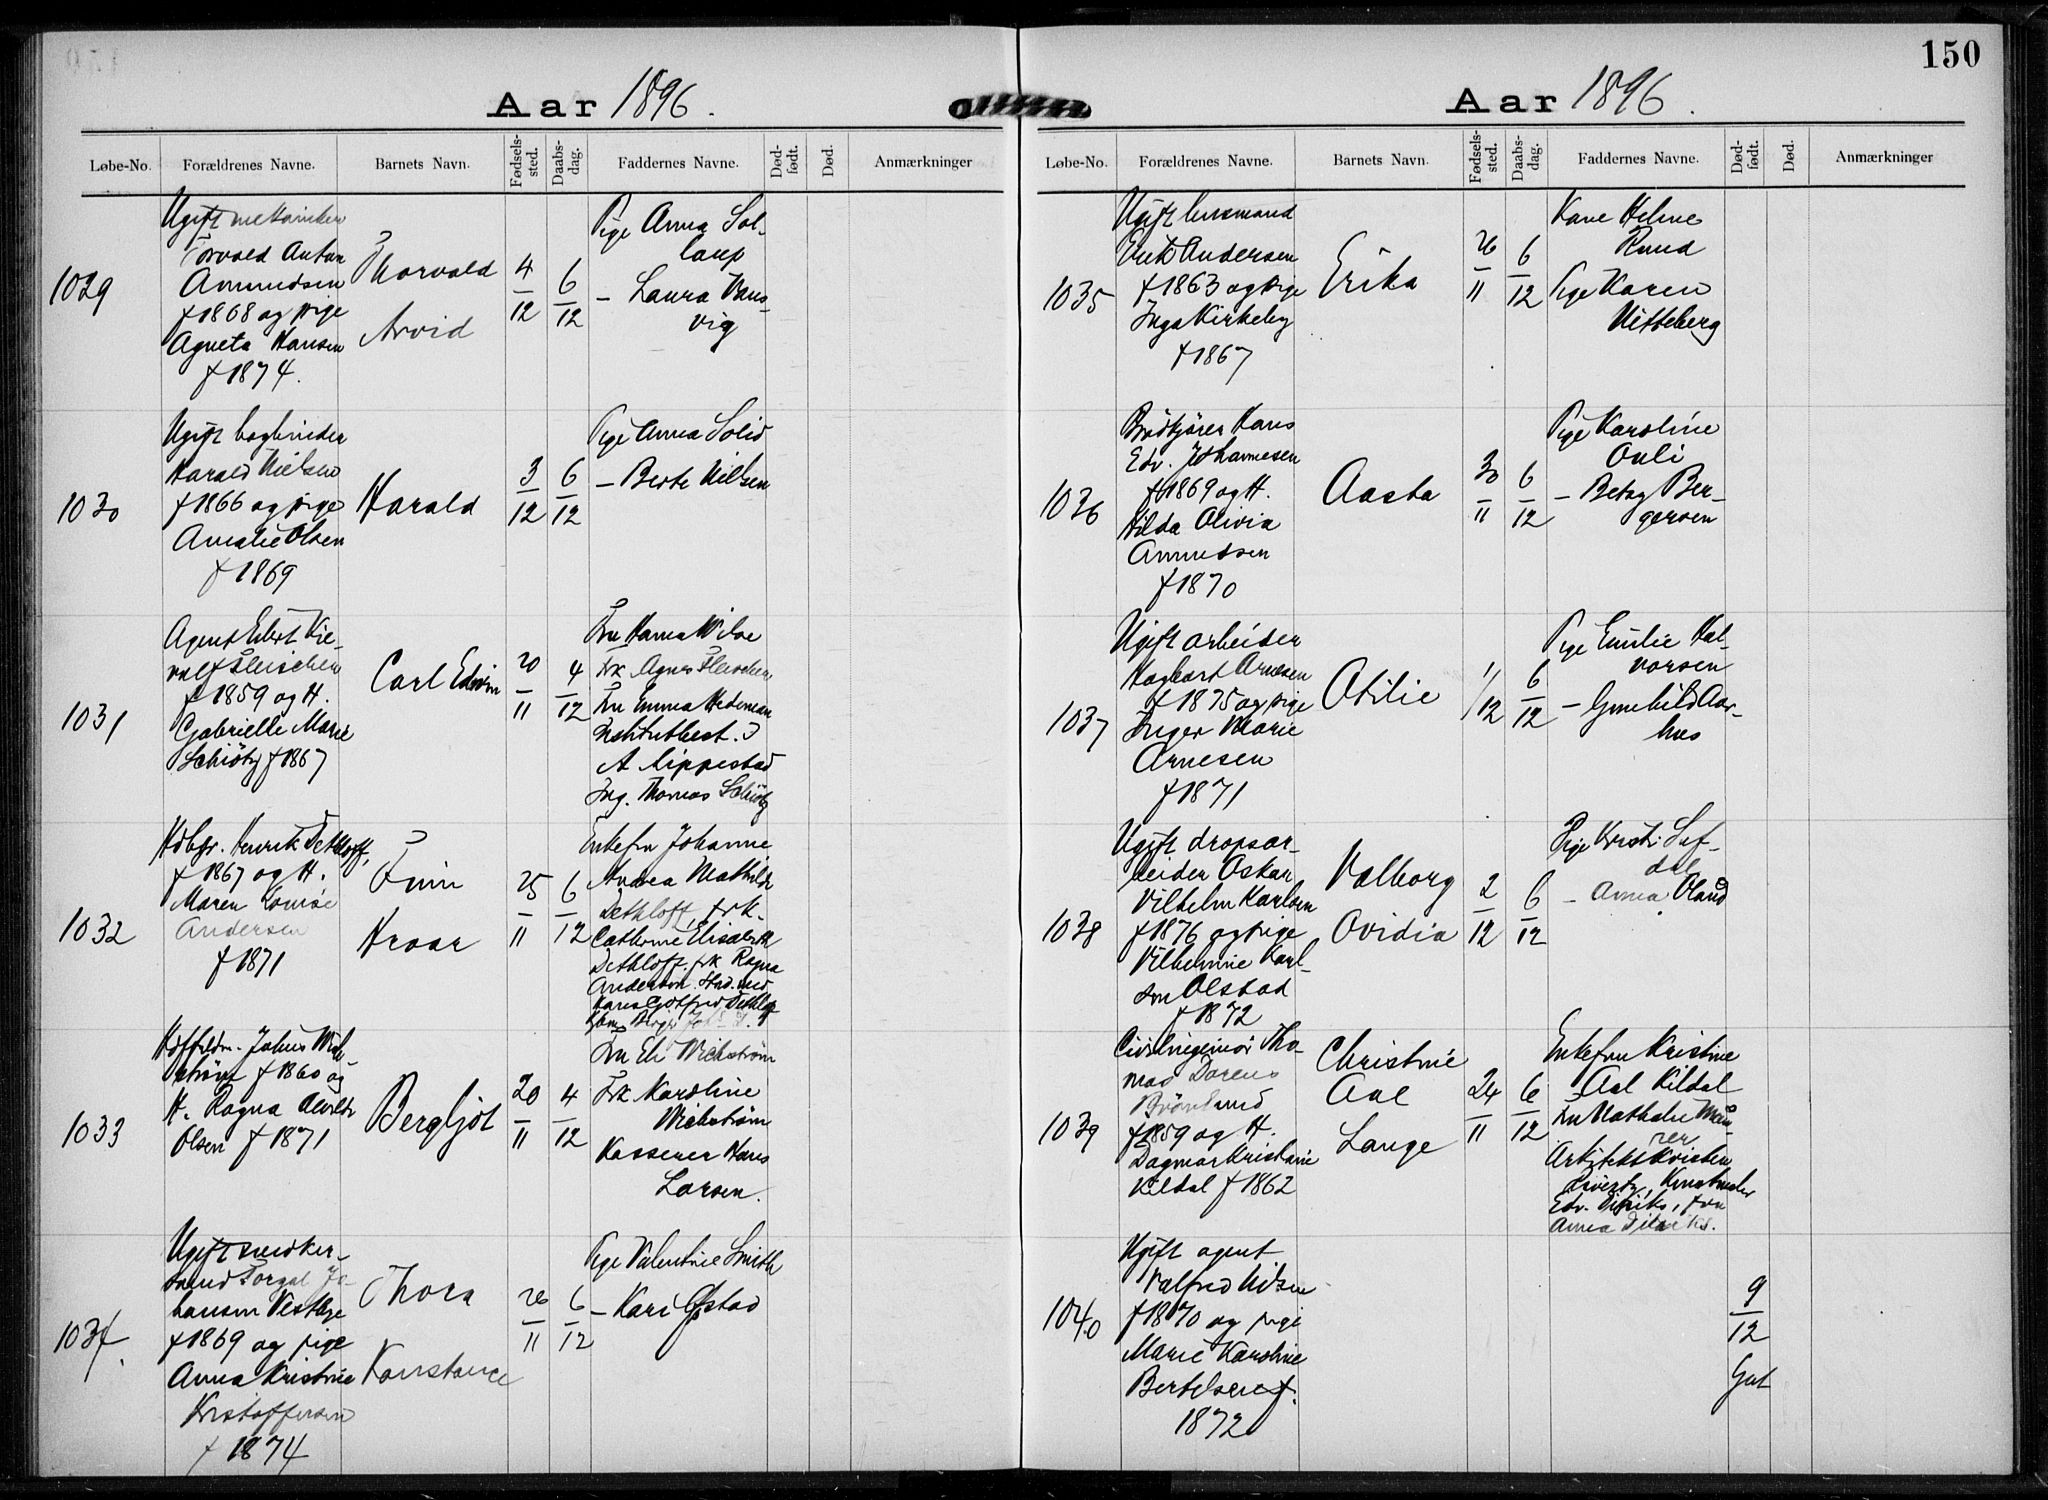 150
Aar 1896.
Løbe-No. Forældrenes Navne. Barnets Navn. Fødsels-sted. Daabs-dag. Faddernes Navne. Død-født. Død. Anmærkninger
1029
Ugift mekaniker
Torvald Anton
Amundsen
f 1868 og pige
Agneta Hansen
f 1874.
Thorvald
Arvid
4/12
6/12
Pige Anna Sol-
laup
— Laura Vans-
vig
1030
Ugift bogbinder
Harald Nielsen
f 1866 og pige
Amalie Olsen
f 1869
Harald
3/12
6/12
Pige Anna Solid
— Berte Nilsen
1031
Agent Ebert Kie-
rulf Fleischer
f 1859 og H.
Gabrielle Marie
Schiötz f 1867
Carl Edvin
20/11
4/12
Fru Hanna
Frk Agnes Fleischer
Fru Emma Hedeman
Institutbest.
A Lippestad
Ing. Thomas Schiötz
1032
Hdlsfr. Henrik Dethloff,
f 1867 og H.
Maren Louise
Andersen
f 1871
Finn
Hroar
25/11
6/12
Enkefru Johanne
Andrea Mathilde
Dethloff, frk.
Cathrine Elisabeth
Dethloff. frk Ragna
Andersen. Stud. med
Hans Gotfred Dethloff
1033
Julius Wick-
strøm f 1860 og
H. Ragna Alvilde
Olsen f 1871
Bergljot
20/11
4/12
Fru Eli Wickstrøm
Frk Karoline
Wickstrøm
Kasserer Hans
Larsen.
1034.
Ugift snedker-
svend Torgal Jo-
hansen
f 1869 og pige
Anna Kristine
Kristoffersen
f 1874
Thora
Konstance
26/11
6/12
Pige Valentine Smith
— Kari Opstad
Aar 1896.
Løbe-No. Forældrenes Navne. Barnets Navn. Fødsels-sted. Daabs-dag. Faddernes Navne. Død-født. Død. Anmærkninger
1035
Ugift husmand
Erik Andersen
f 1863 og pige
Inga Kirkeby
f 1867
Erika
26/11
6/12
Kone Helene
Rund
Pige Karen
Vitteberg
1036
Brødkjører Hans
Edv. Johannesen
f 1869 og H.
Hilda Olivia
Amundsen
f 1870
Aasta
30/11
6/12
Pige Karoline
Onli
— Betzy Ber-
gersen
1037
Ugift arbeider
Hagbart Arnesen
f 1875 og pige
Inger Marie
Arnesen
f 1871
Otilie
1/12
6/12
Pige Emilie Hal-
vorsen
— Gunhild Aar-
hus
1038
Ugift dropsar-
beider Oskar
Vilhelm Karlsen
f 1876 og pige
Vilhelmine Karl-
sen Olstad
f 1872
Valborg
Ovidia
2/12
6/12
Pige Kristi Sef-
dal
— Anna Øland
1039
Civilingeniør Tho-
mas Dorenus
Brönlund
f 1859 og H.
Dagmar Kristine
Kildal f 1862
Christine
Aal
Lange
24/11
6/12
Enkefru Kristine
Aal Kildal
Fru Nathalie
Arkitekt Kristen
Rivertz, Kunstmaler
Edv. Diriks, fru
Anna Diriks.
1040
Ugift agent
Valfred Nilsen
f 1870 og pige
Marie Karoline
Bertelsen f.
1872
9/12
Gut